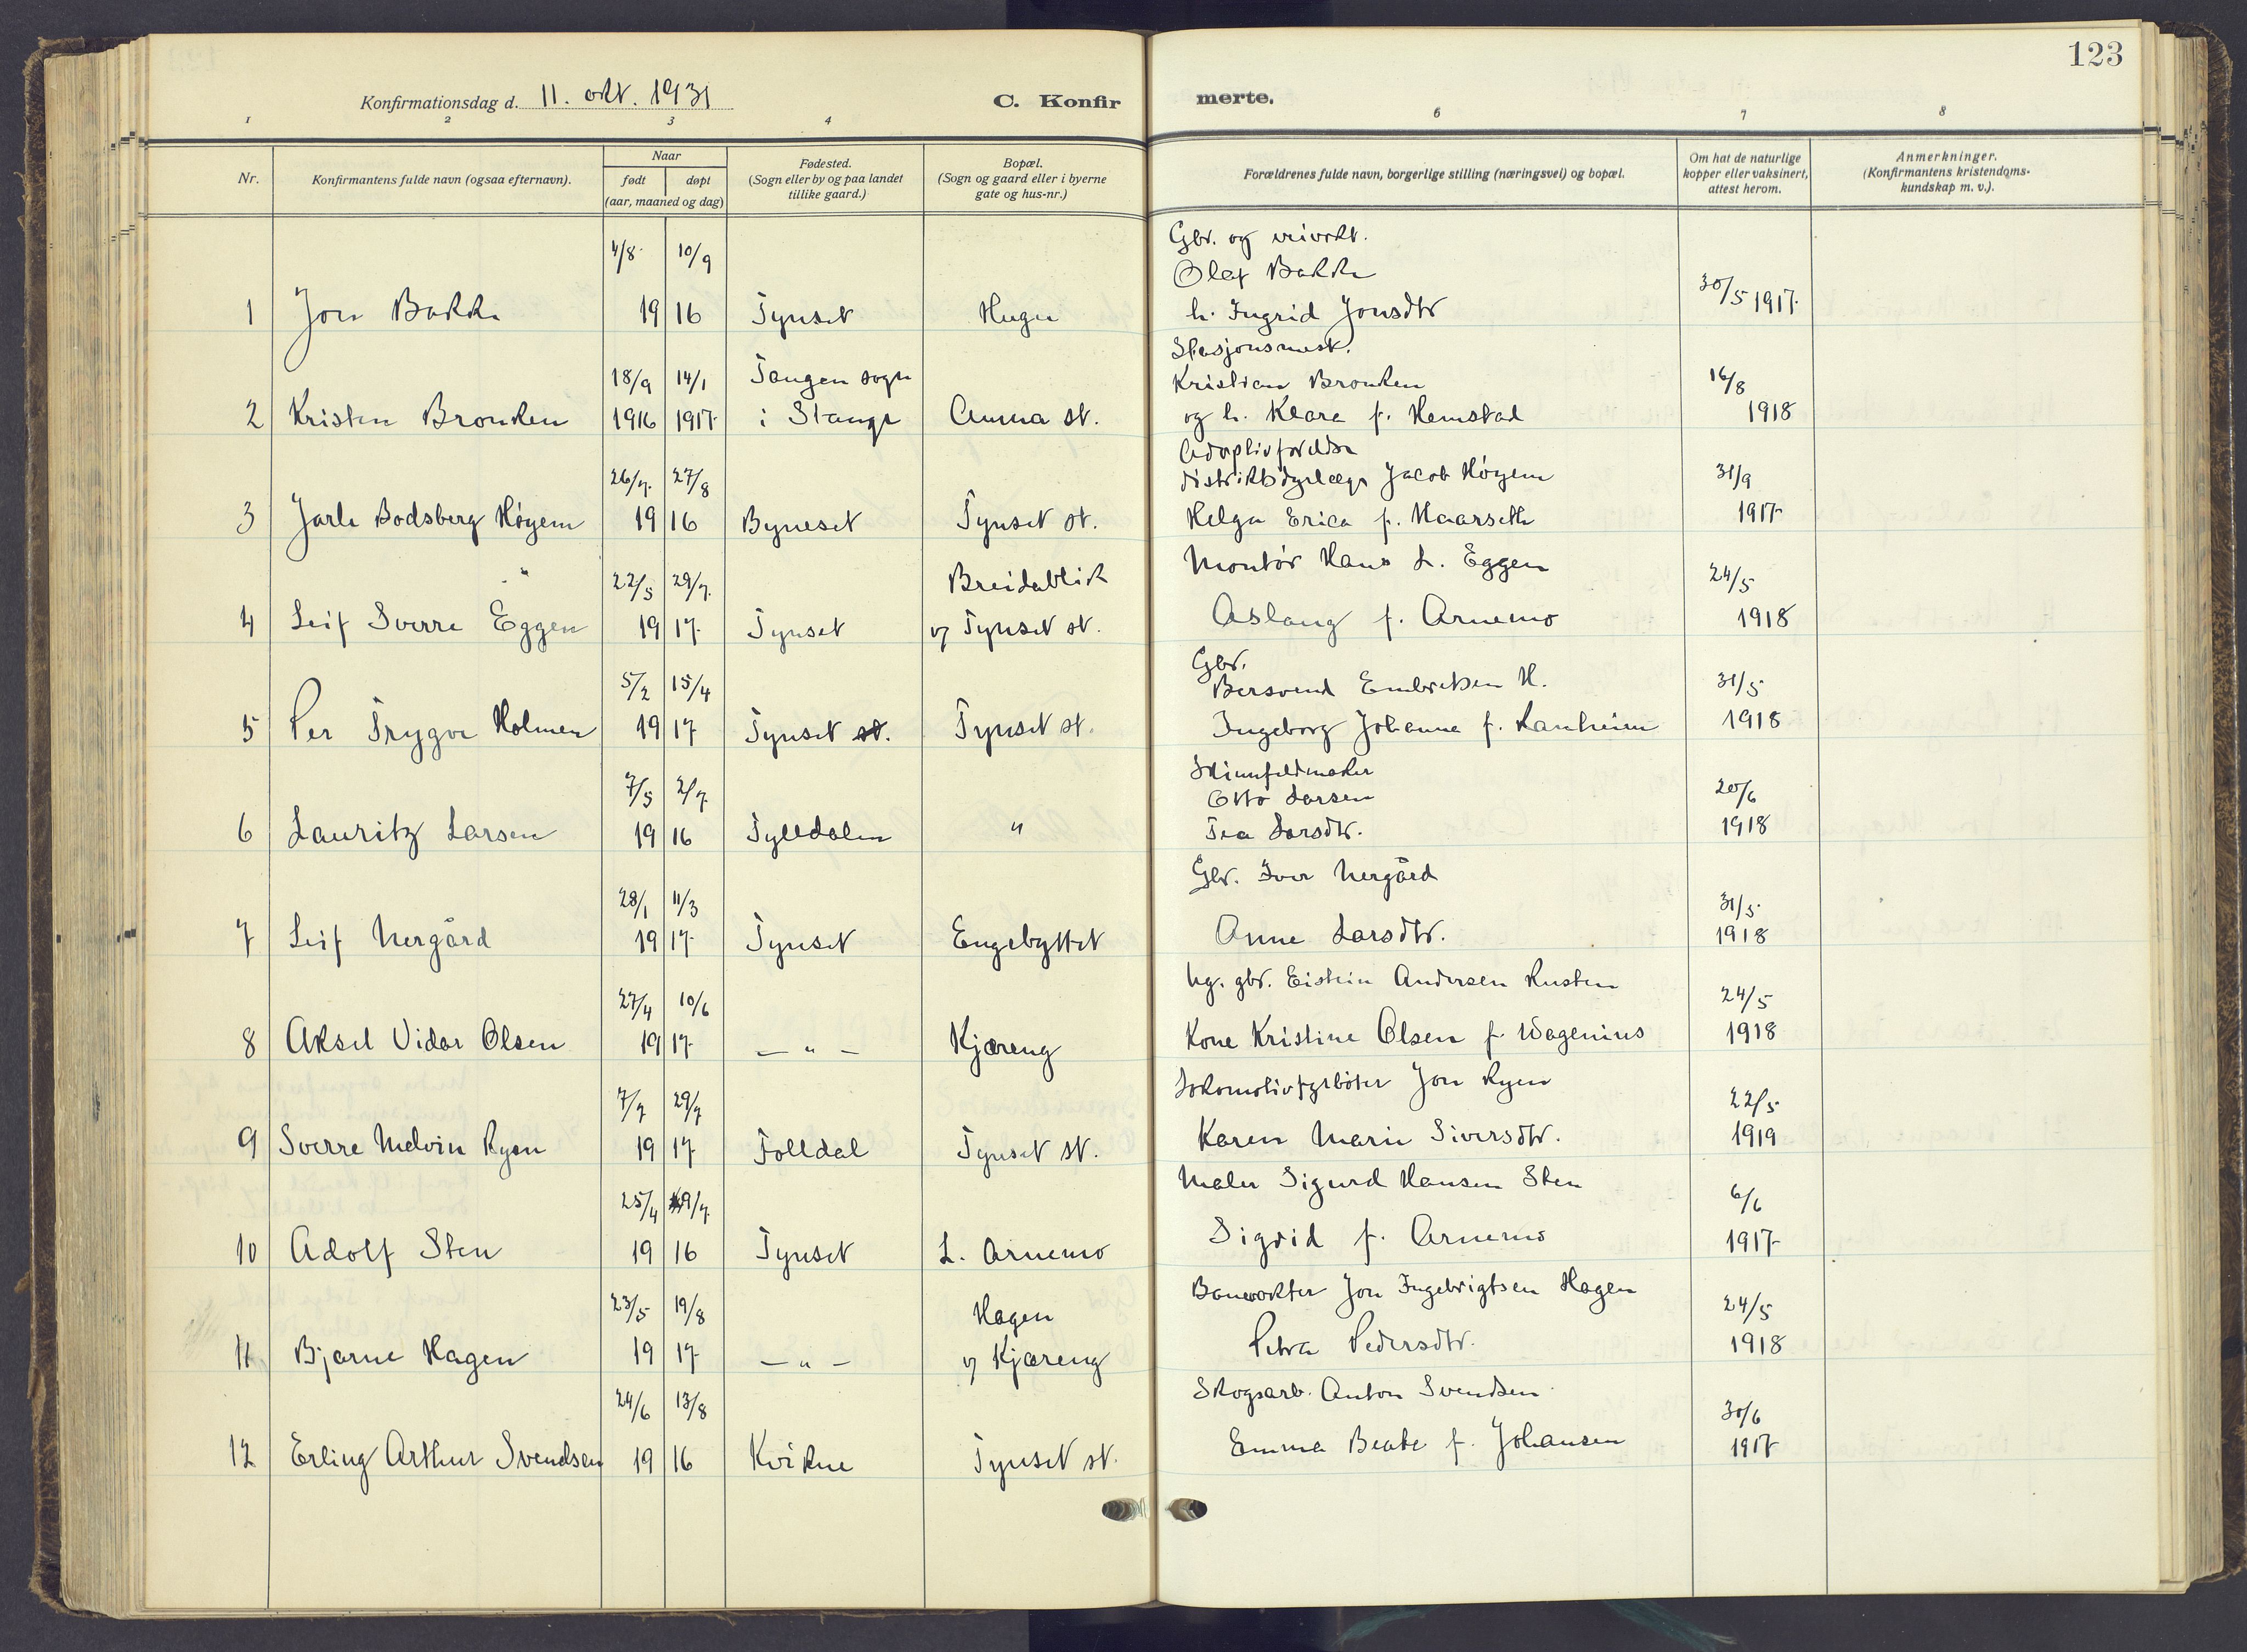 123
Konfirmationsdag d. 11. okt. 1931
C. Konfirmerte.
1 2 3 4 6 7 8
Nr.
Konfirmantens fulde navn (ogsaa efternavn).
Naar
født døpt
(aar, maaned og dag)
Fødested.
(Sogn eller by og paa landet
tillike gaard.)
Bopæl.
(Sogn og gaard eller i byerne
gate og hus-nr.)
Forældrenes fulde navn, borgerlige stilling (næringsvei) og bopæl.
Om hat de naturlige
kopper eller vaksinert,
attest herom.
Anmerkninger.
(Konfirmantens kristendoms-
kundskap m. v.).
Gbr. og
4/8 10/9 Olaf Bakke 30/5 1917
1 Jon Bakke 19 16 Tynset h. Ingrid Jonsdtr
Stasjonsmest.
18/9 14/1 Tangen sogn Kristian Bronken 16/8
2 Kristen Bronken 1916 1917 i Stange Auma st. og h. Klara f. Hemstad 1918
Adoptivforeldre
26/7 27/8 distriktsdyrlæge Jacob Høyem 31/9
3 Jarle Bodsberg Høyem 19 16 Byneset Tynset st. Helga Erica f. Haarseth 1917
22/5 29/7 Breidablik Montør Hans L. Eggen 24/5
4 Leif Sverre Eggen 19 17 Tynset v/ Tynset st. Aslaug f. Arnemo 1918
Gbr.
5/2 15/4 Bersvend Embretsen H. 31/5
5 Per Trygve Holmen 19 17 Tynset st. Tynset st. Ingeborg Johanne f. Lanheim 1918
Skinnfeldmaker
7/5 2/7 Otto Larsen 20/6
6 Lauritz Larsen 19 16 Tylldalen " Tea Larsdtr. 1918
Gbr. Iver Nergård
28/1 11/3 31/5
7 Leif Nergård 19 17 Tynset Engebyttet Anne Larsdtr. 1918
27/4 10/6 ug. gbr. Eistein Andersen Rusten 24/5
8 Aksel Vidar Olsen 19 17 — " — Kjæreng Kone Kristine Olsen f. Wagenius 1918
7/7 29/7 Lokomotivfyrbøter Jon Ryen 22/5
9 Sverre Melvin Ryen 19 17 Folldal Tynset st. Karen Marie Siversdtr. 1919
25/4 9/7 Maler Sigurd Hansen Sten 6/6
10 Adolf Sten 19 16 Tynset L. Arnemo Sigrid f. Arnemo 1917
23/5 19/8 Hagen Banevokter Jon Ingebrigtsen Hagen 24/5
11 Bjarne Hagen 19 17 — " — v/ Kjæreng Petra Pedersdtr. 1918
24/6 13/8 Skogsarb. Anton Svendsen 30/6
12 Erling Arthur Svendsen 19 16 Kvikne Tynset st. Emma Beate f. Johansen 1917